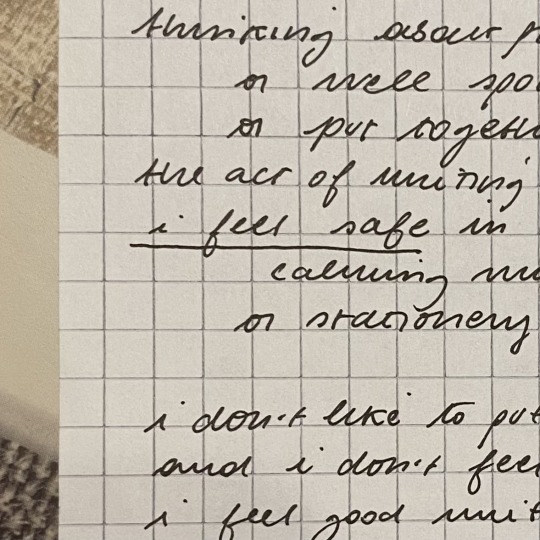 thinking about
or well spo
or put togeth
the act of writing
i feel safe in
calming
or stationery
i don't like to put
and i don't feel
i feel good writ